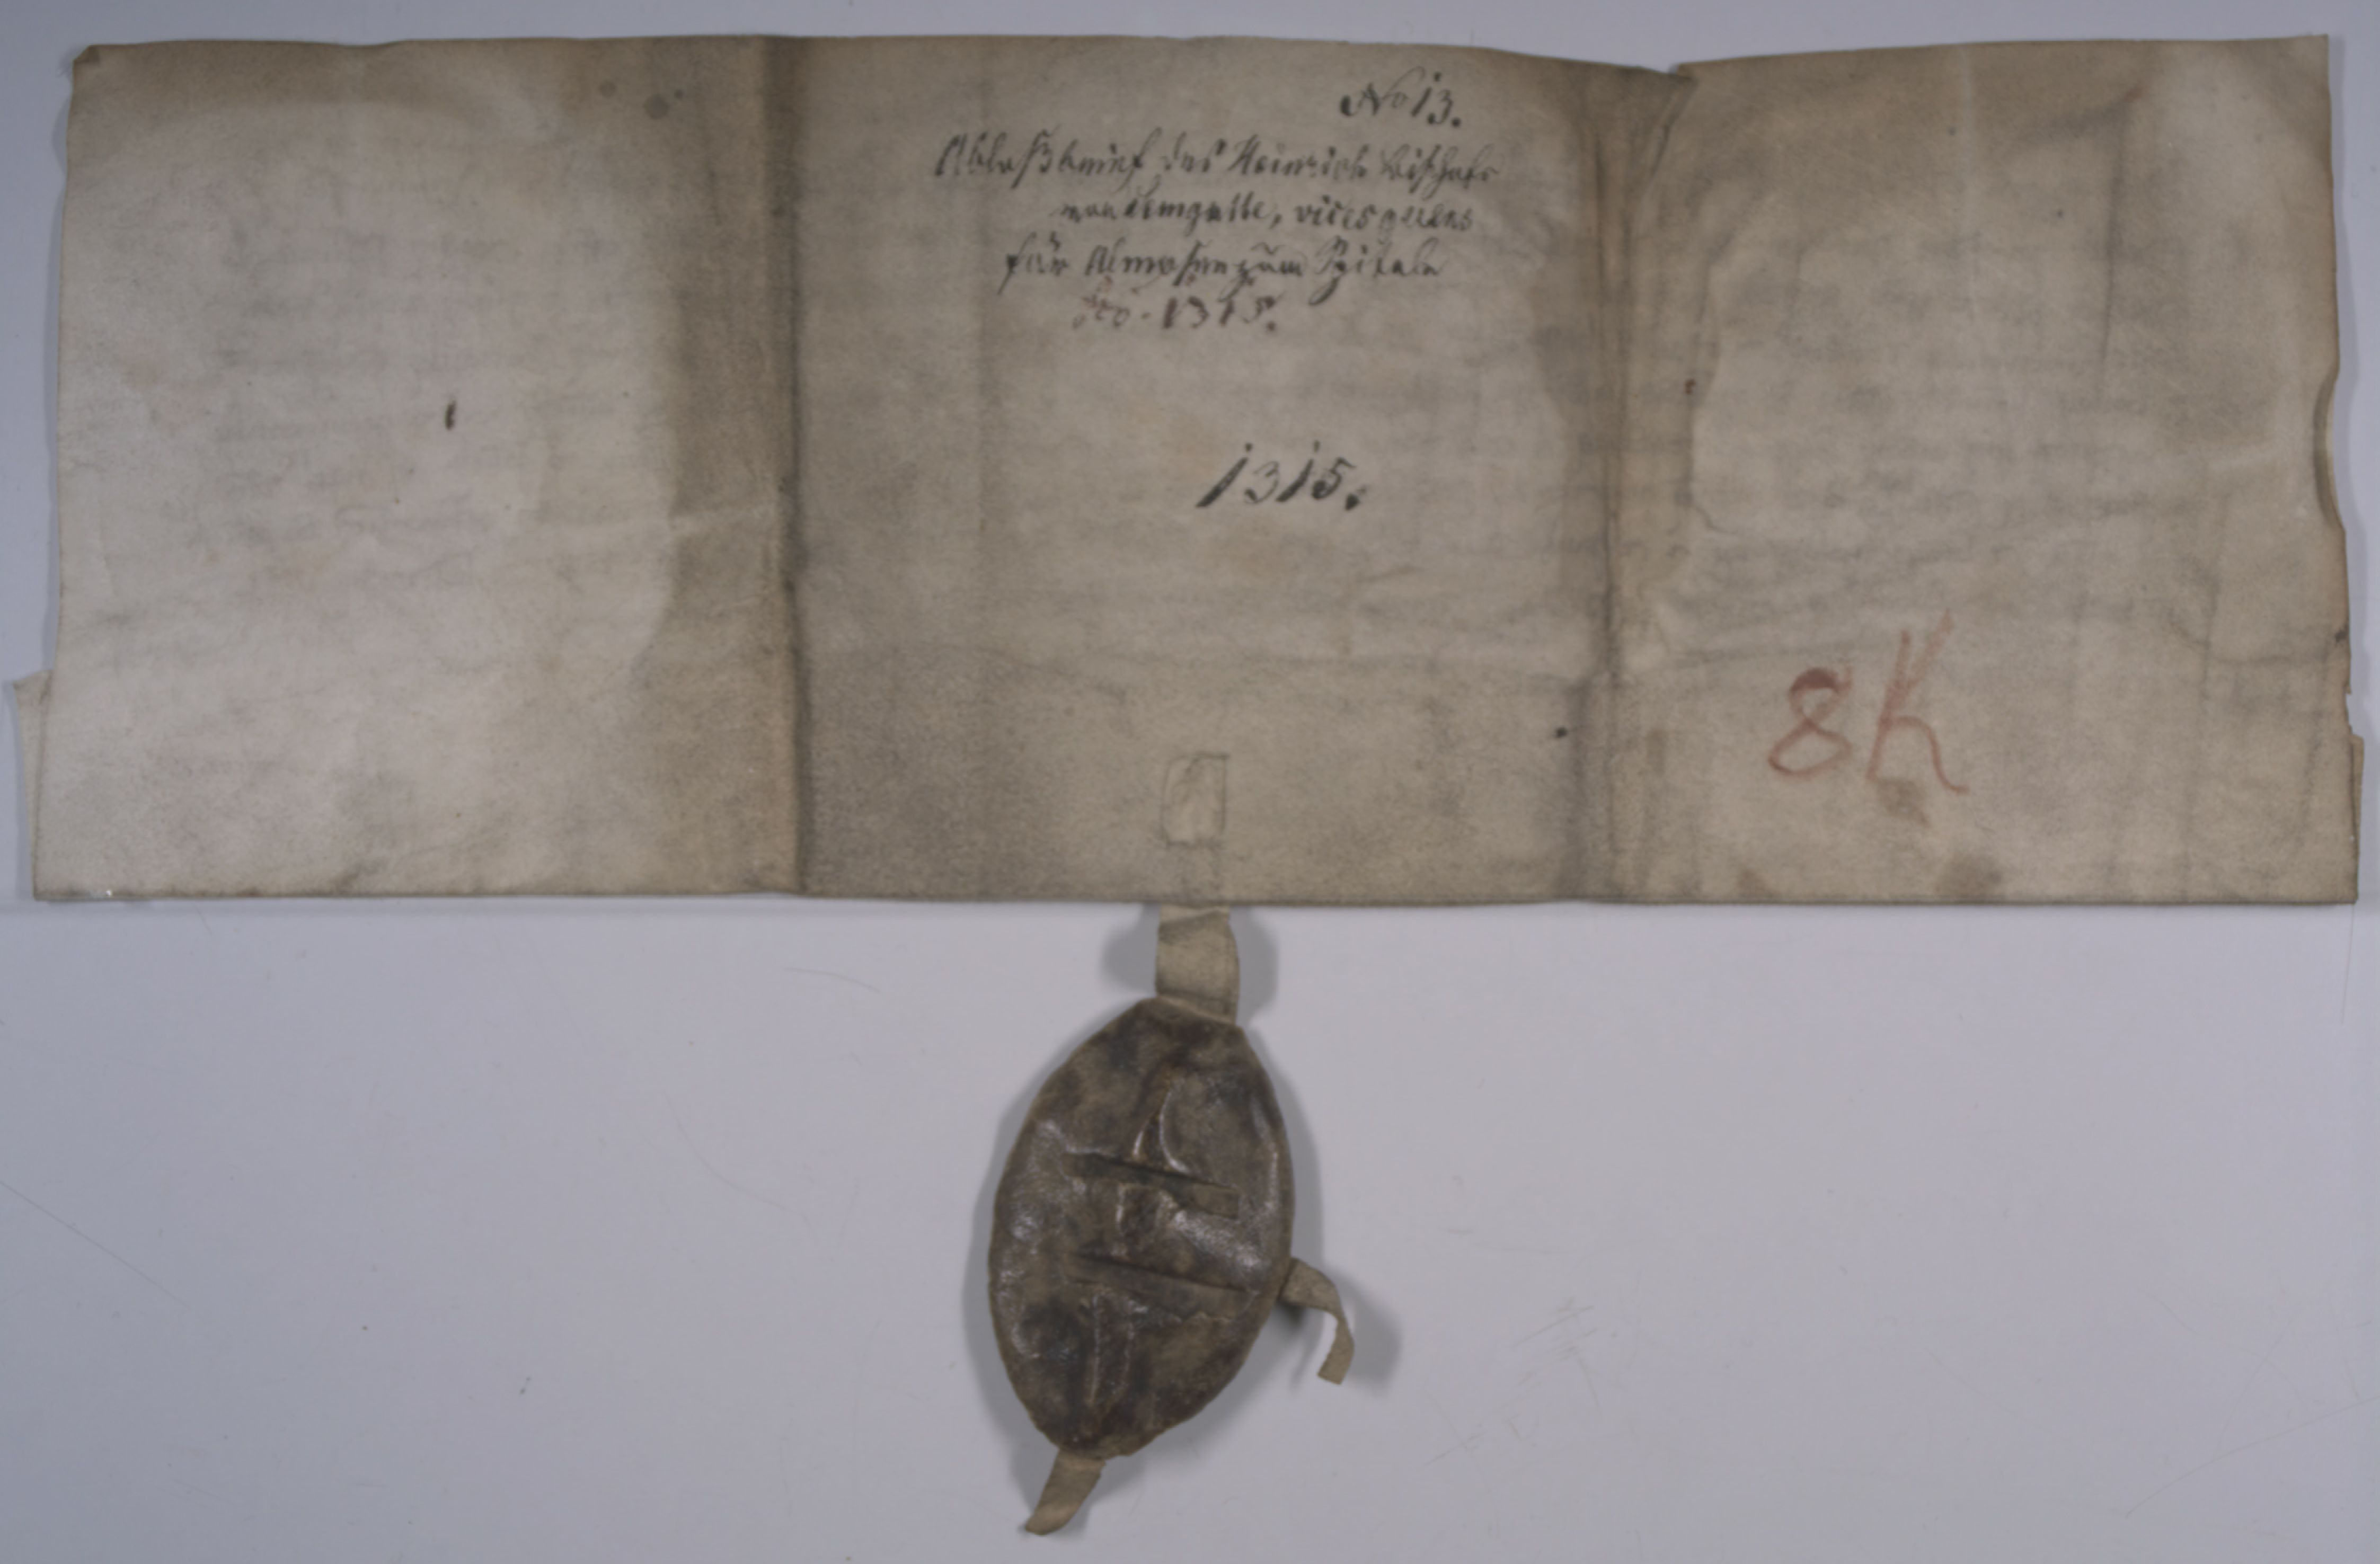 No 13.
Ablaßbrief des Heinrich Bischofs
von, vices gerens
für Almosen zum Spitale
dto. 1315.
1315.
8